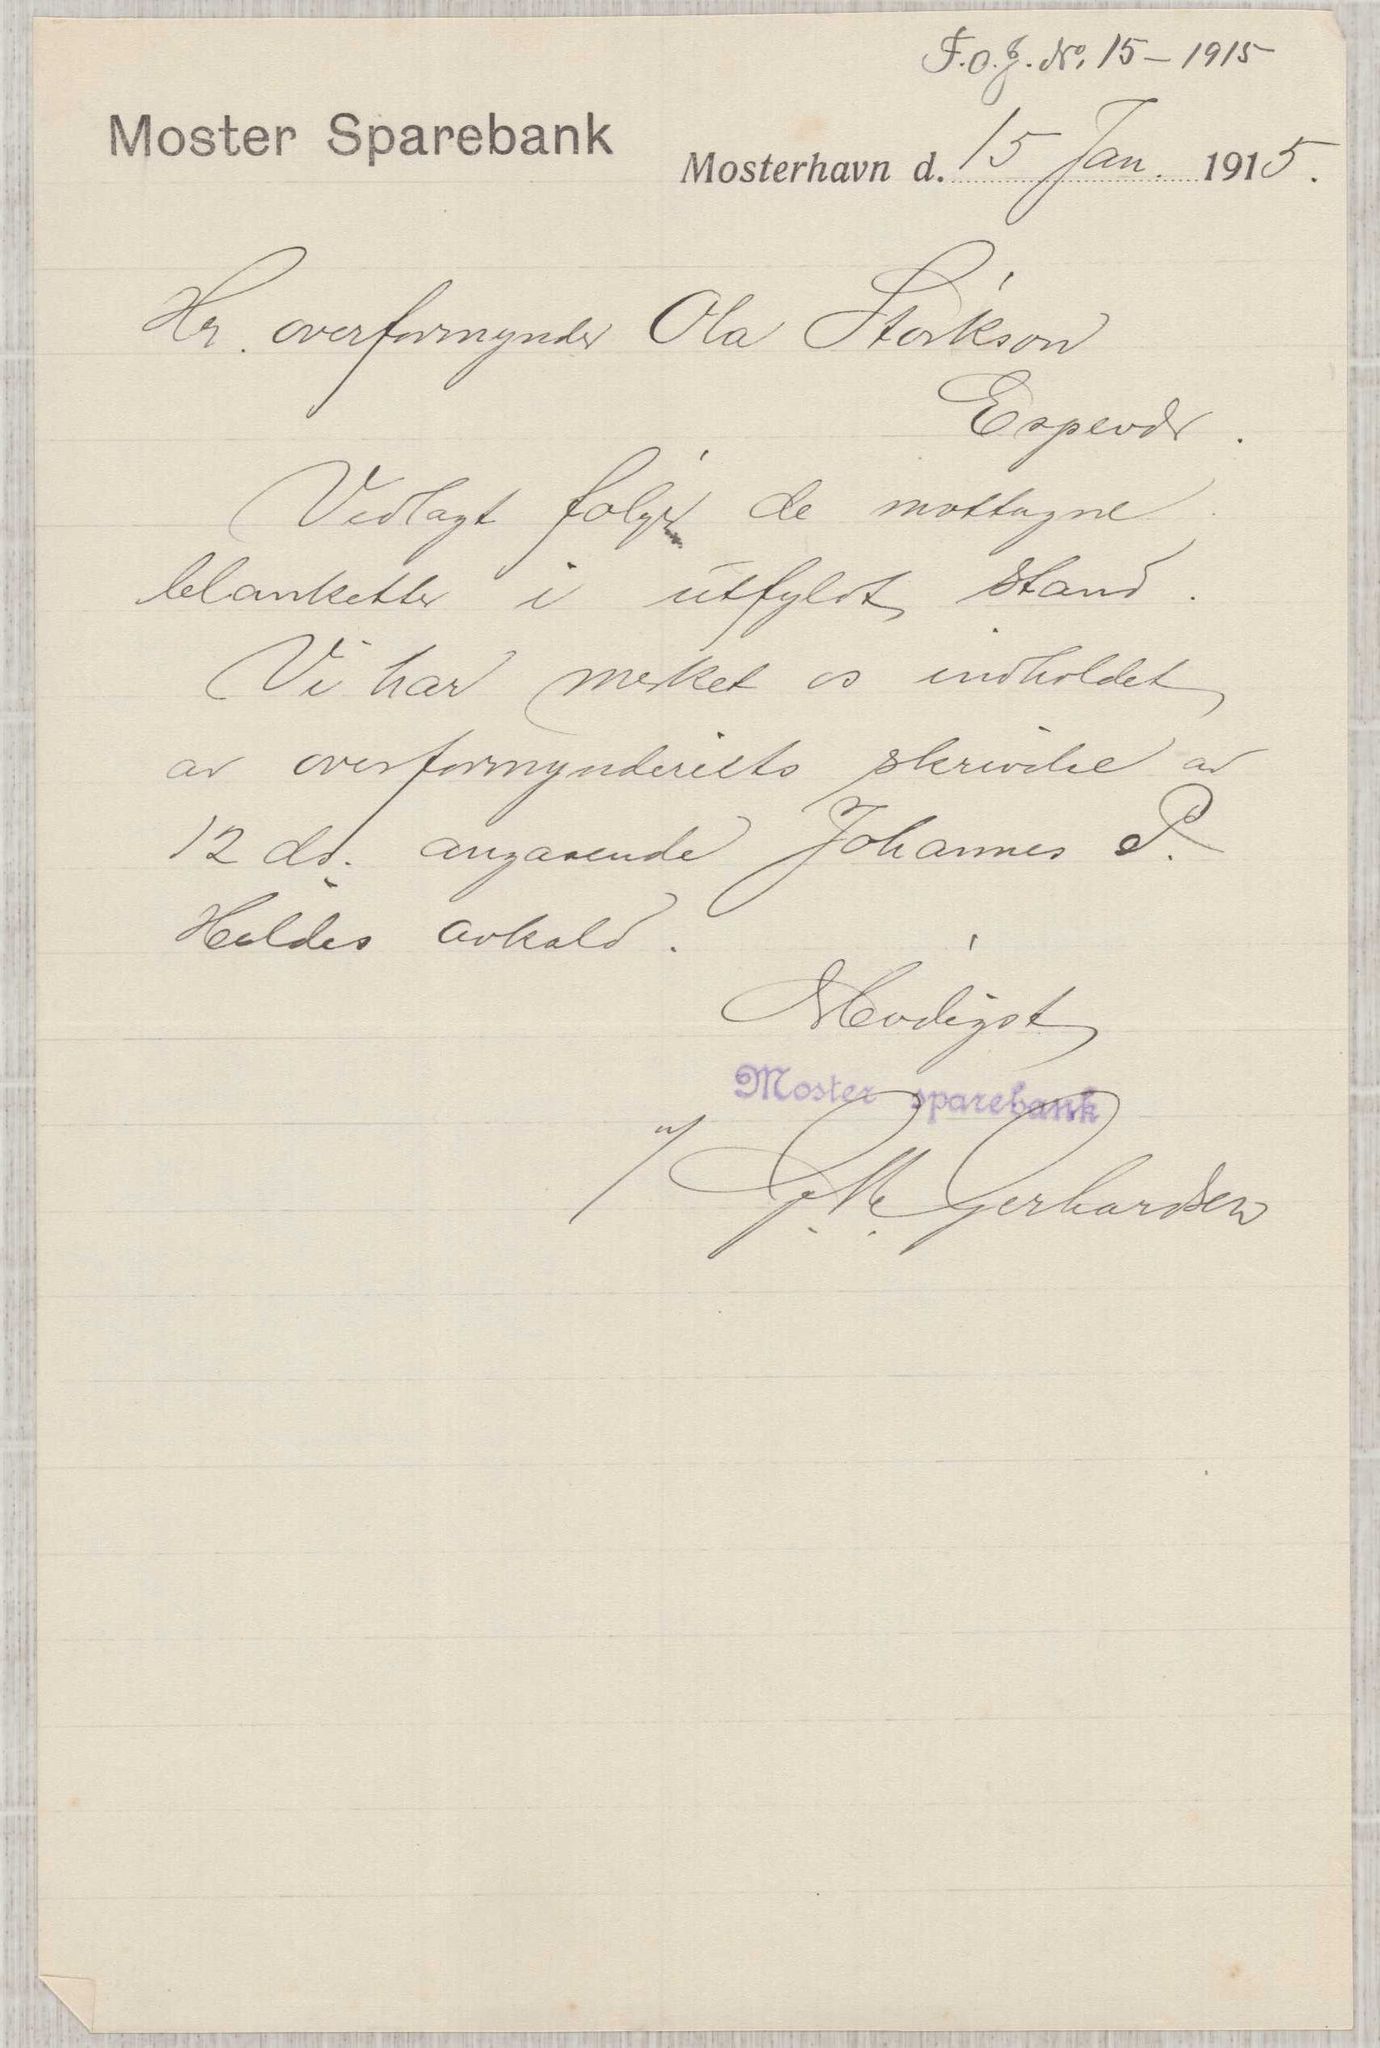 F.O.J. No. 15 – 1915
Moster Sparebank
Mosterhavn d. 15 Jan. 1915.
Hr. overformynder Ola Størkson
Espevær.
Vedlagt følger de mottagne
blanketter i utfyldt stand.
Vi har merket os indholdet
av overformynderiets skrivelse av
12 ds. angaaende Johannes P.
Heldes avkald.
Ærbødigst
Moster sparebank
Gerhardsen